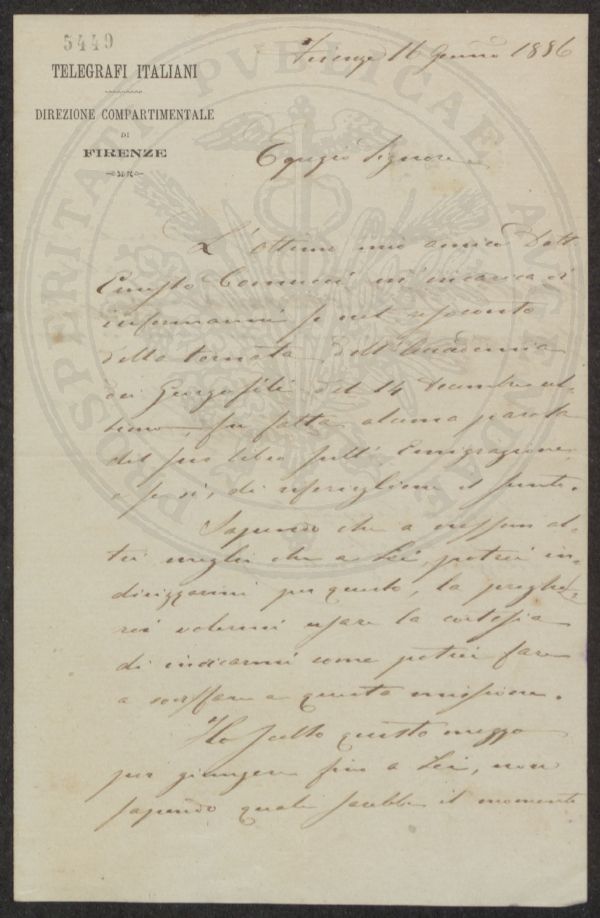 5449
Firenze 16 Gennaio 1886
TELEGRAFI ITALIANI
DIREZIONE COMPARTIMENTALE
DI
FIRENZE
Egregio Signore
L'ottimo mio amico Dott.
m'incarica d'
informarmi se nel resoconto
della tornata dell'Accademia
dei Georgofili del 14 Decembre ul-
timo, fu fatta alcuna parola
del suo libro sull'Emigrazione,
e se sì, di riferigliene il sunto.
Sapendo che a nessun al-
tri meglio che a Lei, potrei in-
dirizzarmi per questo, la preghe-
rei volermi usare la cortesia
di indicarmi come potrei fare
a soddisfare a questa missione.
Ho scelto questo mezzo
per giungere fino a Lei, non
sapendo quale sarebbe il momento
PROSPERITATI PVBLICAE AVGENDAE